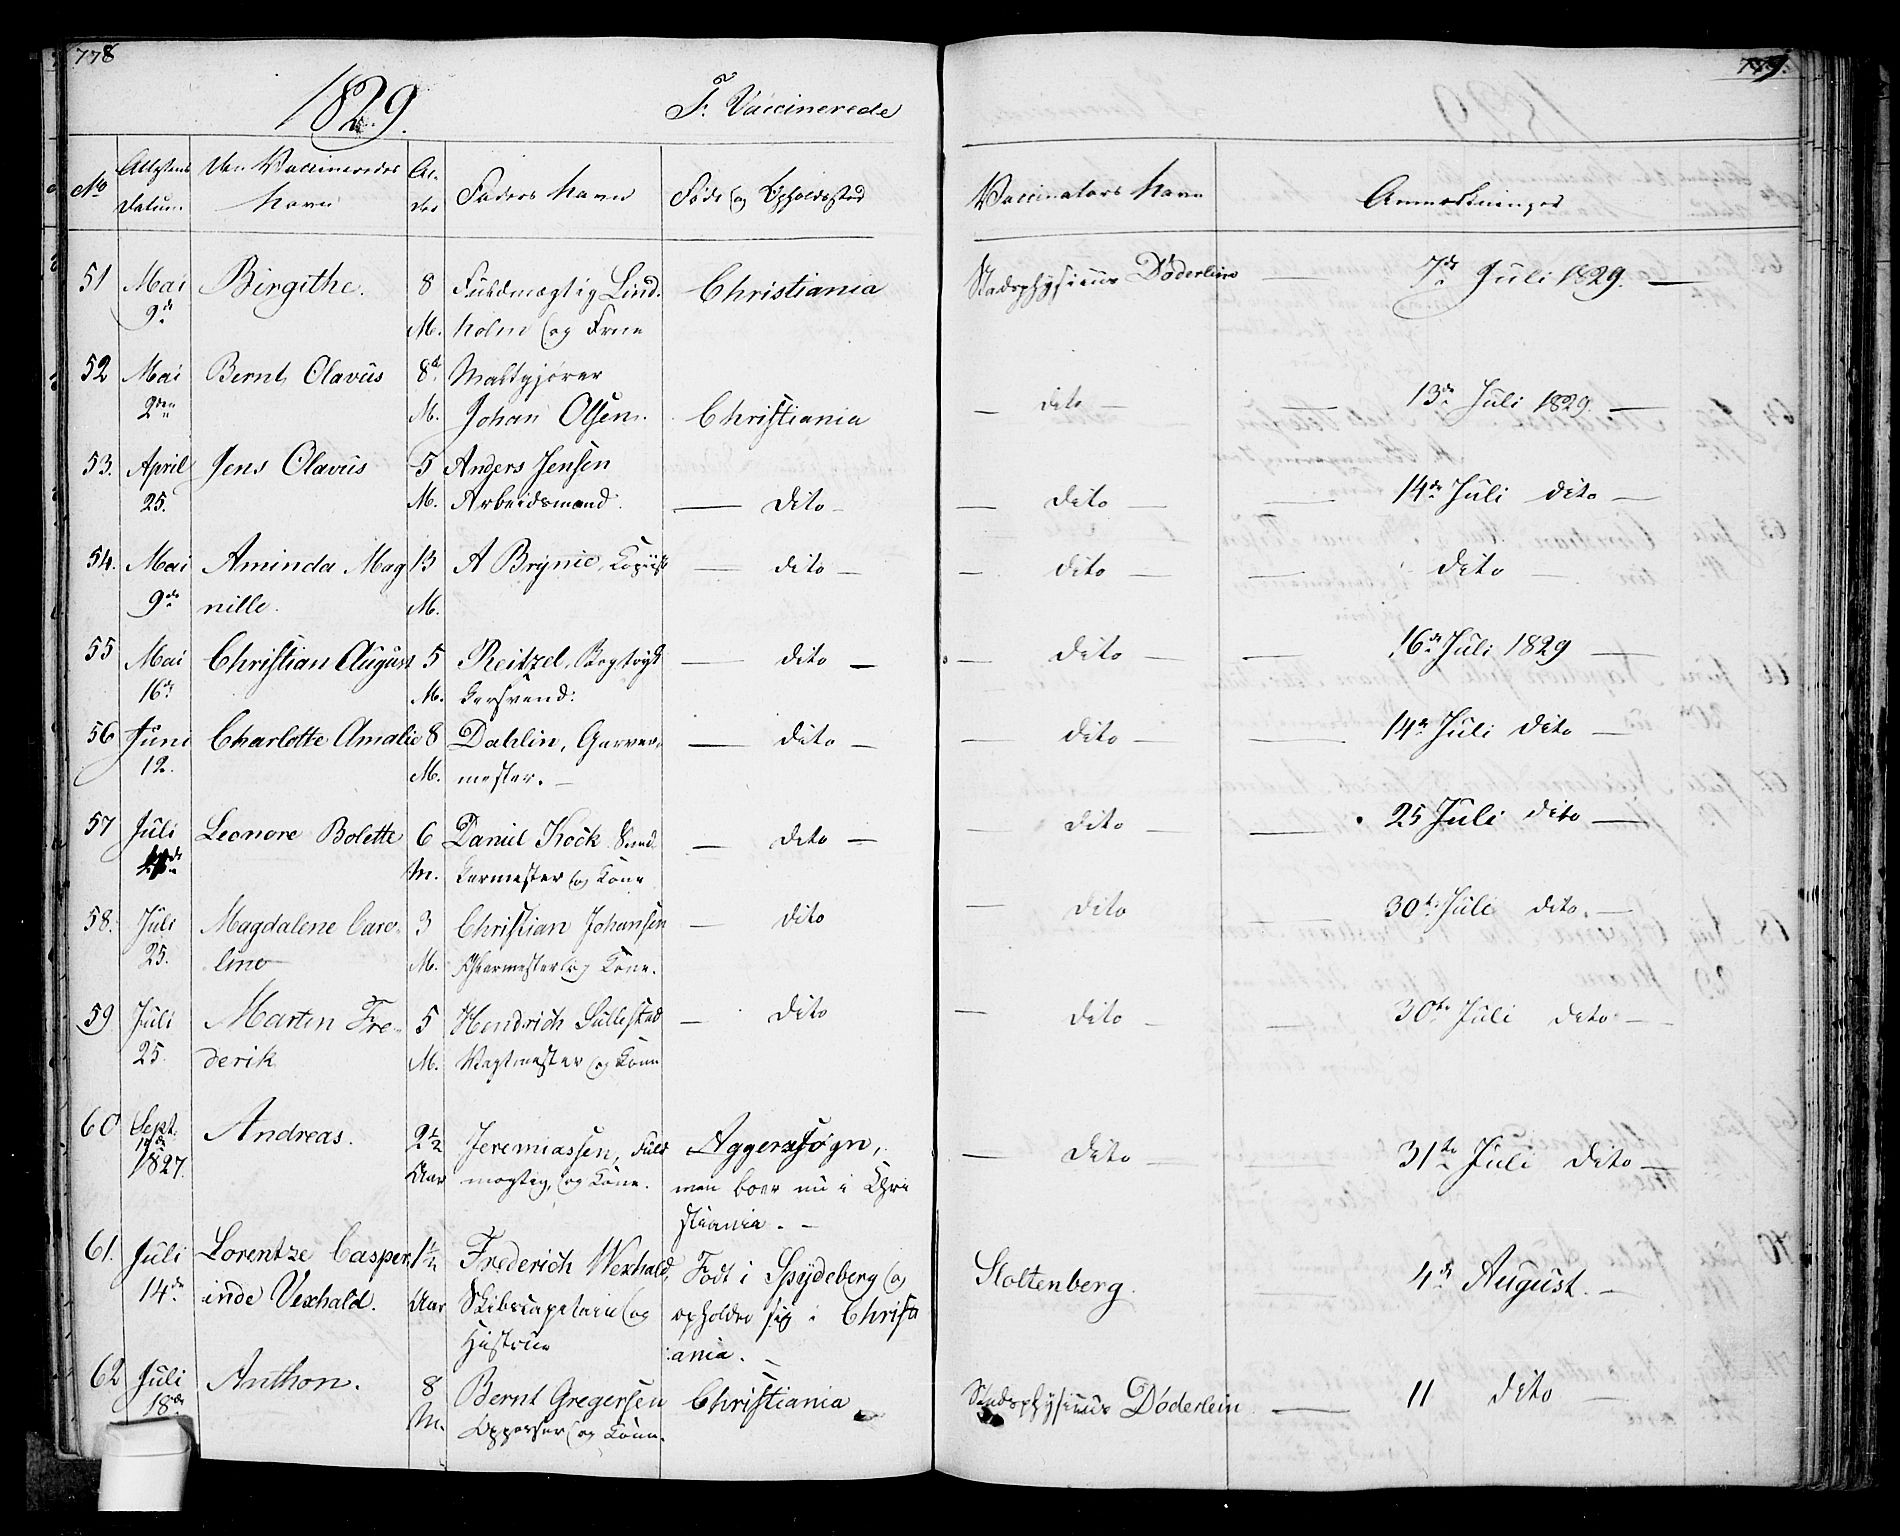 778
1829.
F. Vaccinerede
No
Attestens Datum
Den Vaccineredes Navn
Alder
Faders Navn
Føde og Opholdssted
51 Mai 9de Birgithe. 8 M. Fuldmægtig Lindholm og Frue Christiania
52 Mai 2den Bernt Olavus 8te M. Johan Olsen. Christiania
53. April 25. Jens Olavus 5 M. Anders Jensen Arbeidsmand. — Dito —
54. Mai 9de Aminda Magnille. 13 M. A Brynie, Kopiist — dito —
55 Mai 16de Christian August 5 M. Reitzel, Bogtrykkersvend: — dito —
56 Juni 12. Charlotte Amalie 8 M. Dahlin, Garvermester. — — dito —
57 Juli Leonore Bolette 6 M. Daniel Kock Snedkermester og Kone — dito —
58. Juli 25. Magdalene Caroline 3 M. Christian Johansen og Kone. — dito
59 Juli 25. Martin Frederik 5 M. Hendrich Lillestad Vagtmester og Kone — dito
60 Sept. 1827. Andreas. 2½ Aar Jeremiassen, Fuldmægtig, og Kone. Aggersogn, men boer nu i Christiania. —
61. Juli 14de Lorentze Casperinde Vexhald. 1½ Aar Frederich Wexhald, Skibscapitain og Hustrue Født i Spydeberg og opholder sig i Christiania.
62 Juli 18de Anthon. 8 M. Bernt Gregersen Opp og Kone. Christiania
779.
Vaccinators Navn
Anmærkninger
Stadsphysicus Døderlein — 7de Juli 1829. —
— dito — — 13de Juli 1829. —
— dito — — 14de Juli dito —
— dito — — dito —
— dito — — 16de Juli 1829 —
— dito — — 14de Juli dito —
— dito — — 25 Juli dito —
— dito 30te Juli dito. —
— dito — — 30te Juli dito —
— dito — 31te Juli dito —
Stoltenberg. 4de August. —
Stadsphysicus Døderlein. — 11 dito —